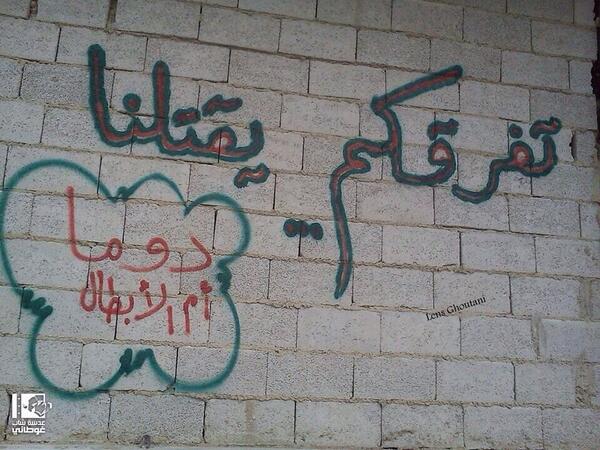 تفرقكم .. يقتلنا
دوما
أم الأبطال
Lens Ghoutani
عدسة شاب
غوطاني